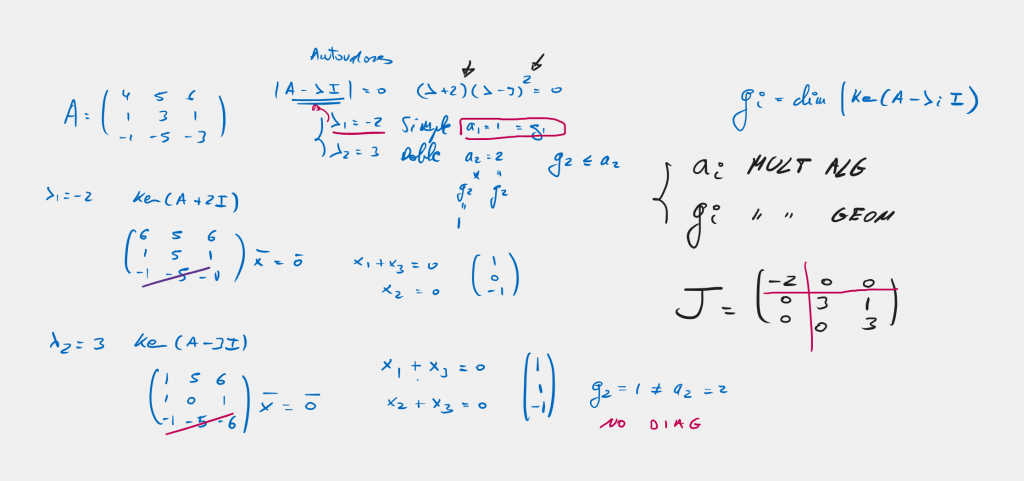 Autovalores
A = ( 4 5 6
1 3 1
-1 -5 -3 )
|A - λI| = 0 (λ+2)(λ-3)² = 0
λ₁ = -2 Simple a₁ = 1 = g₁
λ₂ = 3 Doble a₂ = 2 g₂ ≤ a₂
g₂ g₂
1
gᵢ = dim (Ker(A - λᵢ I)
aᵢ MULT ALG
gᵢ " " GEOM
λ₁ = -2 Ker (A + 2I)
( 6 5 6
1 5 1
-1 -5 -1 ) x̄ = 0̄
x₁ + x₃ = 0
x₂ = 0
( 1
0
-1 )
J = ( -2 0 0
0 3 1
0 0 3 )
λ₂ = 3 Ker (A - 3I)
( 1 5 6
1 0 1
-1 -5 -6 ) x̄ = 0̄
x₁ + x₃ = 0
x₂ + x₃ = 0
( 1
1
-1 )
g₂ = 1 ≠ a₂ = 2
NO DIAG